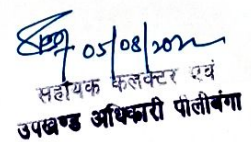 05/08/2022
सहायक कलक्टर एवं
उपखण्ड अधिकारी पीलीबंगा